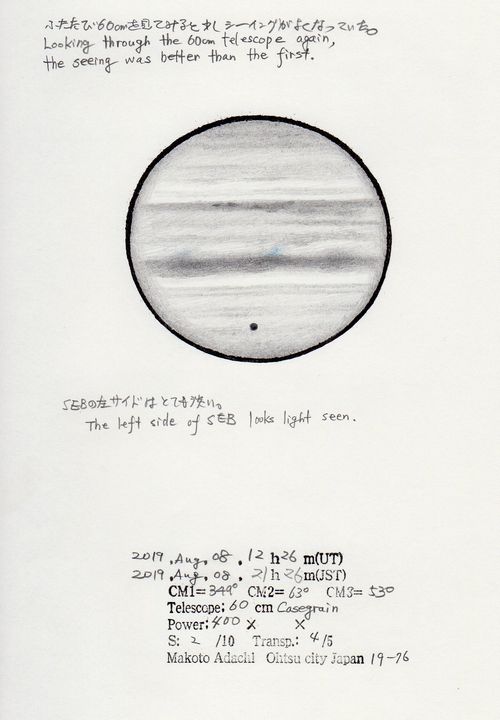 ふたたび60cmを見てみると少しシーイングがよくなっていた。
Looking through the 60cm telescope again,
the seeing was better than the first.
SEBの左サイドはとても淡い。
The left side of SEB looks light seen.
2019, Aug, 08, 12 h 26 m(UT)
2019, Aug, 08, 21 h 26 m(JST)
CM1= 349° CM2= 63° CM3= 530
Telescope: 60 cm Casegrain
Power: 400 × ×
S: 2 /10 Transp.: 4/5
Makoto Adachi Ohtsu city Japan 19-76